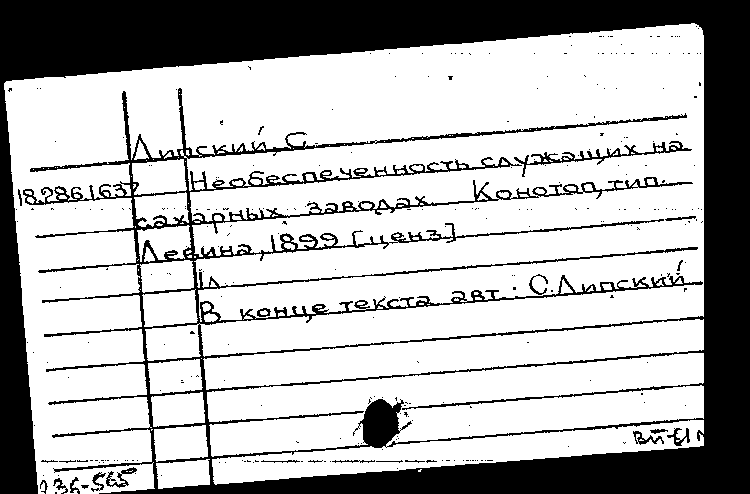 Липский, С
18.286.1.637 Необеспеченность служащих на
сахарных заводах Конотоп, тип.
Левина, 1899 [ценз]
1л
В конце текста авт: С.Липский
36-565